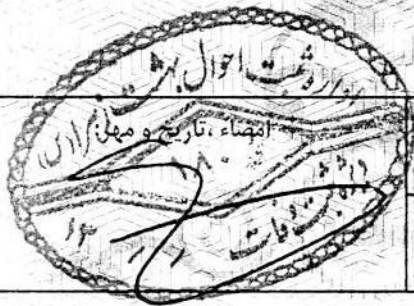 اداره ثبت احوال بهشت زهرا (س)
امضاء ،تاریخ و مهر:
۱۸۰
ثبت وفات